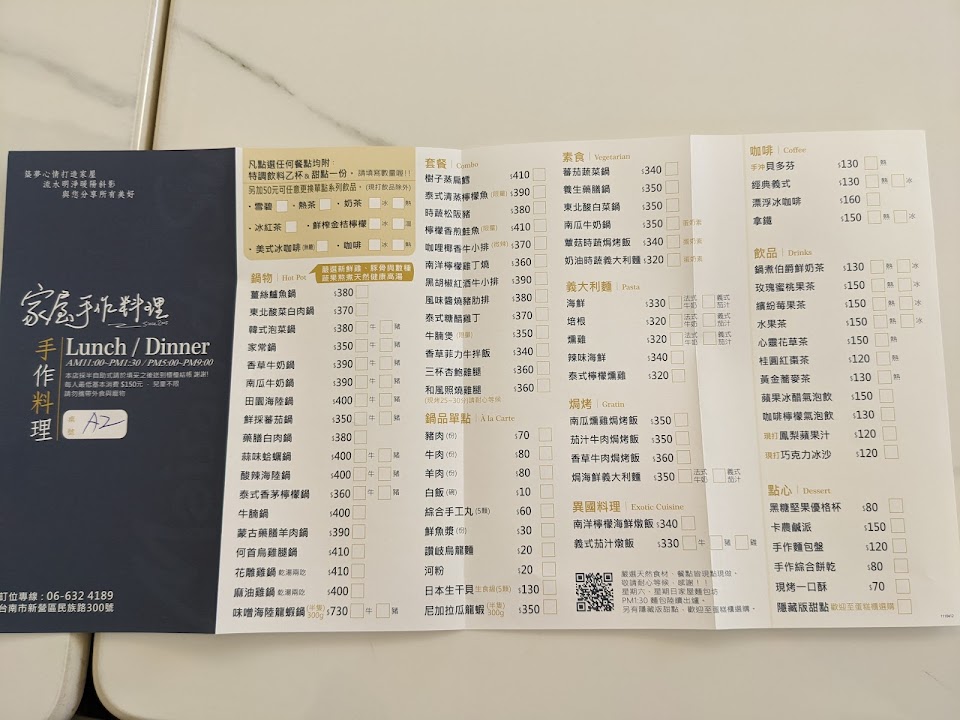 築夢心情打造家屋
流水明淨暖陽斜影
與您分享所有美好
家屋手作料理
手作料理
Lunch / Dinner
AM11:00~PM1:30 / PM5:00~PM9:00
每人最低基本消費 $150元 · 兒童不限
請勿攜帶外食與寵物
桌號
A2
訂位專線：06-632 4189
台南市新營區民族路300號
凡點選任何餐點均附:
特調飲料乙杯&甜點一份，請填寫數量喔!!
另加50元可任意更換單點系列飲品。(現打飲品除外)
·雪碧 ·熱茶 ·奶茶 冰 熱
·冰紅茶 ·鮮榨金桔檸檬 冰 溫
·美式冰咖啡 ·咖啡 冰 熱
鍋物 | Hot Pot
嚴選新鮮雞、豚骨與數種
蔬果熬煮天然健康高湯
薑絲鱸魚鍋 $380
東北酸菜白肉鍋 $370
韓式泡菜鍋 $380 牛 豬
家常鍋 $350 牛 豬
香草牛奶鍋 $390 牛 豬
南瓜牛奶鍋 $390 牛 豬
田園海陸鍋 $400 牛 豬
鮮採蕃茄鍋 $350 牛 豬
藥膳白肉鍋 $380
蒜味蛤蠣鍋 $400 牛 豬
酸辣海陸鍋 $400 牛 豬
泰式香茅檸檬鍋 $360 牛 豬
牛腩鍋 $400
蒙古藥膳羊肉鍋 $390
何首烏雞腿鍋 $410
花雕雞鍋 乾湯兩吃 $410
麻油雞鍋 乾湯兩吃 $400
味噌海陸龍蝦鍋 (半隻) 300g $730 牛 豬
套餐 | Combo
樹子蒸扁鱈 $410
泰式清蒸檸檬魚 (限量) $390
時蔬松阪豬 $380
檸檬香煎鮭魚 (限量) $410
咖哩椰香牛小排 (微辣) $370
南洋檸檬雞丁燒 $360
黑胡椒紅酒牛小排 $390
風味醬燒豬肋排 $380
泰式糖醋雞丁 $370
牛腩煲 (限量) $350
香草菲力牛拌飯 $340
三杯杏鮑雞腿 $360
和風照燒雞腿 $360
(現烤25~30分)請耐心等候
鍋品單點 | À la Carte
豬肉(份) $70
牛肉(份) $80
羊肉(份) $80
白飯(碗) $10
綜合手工丸(5顆) $60
鮮魚漿(份) $30
讚岐烏龍麵 $20
河粉 $20
日本生干貝 生食級(5顆) $130
尼加拉瓜龍蝦 (半隻) 300g $350
素食 | Vegetarian
蕃茄蔬菜鍋 $340
養生藥膳鍋 $350
東北酸白菜鍋 $350
南瓜牛奶鍋 $350 蛋奶素
蕈菇時蔬焗烤飯 $340 蛋奶素
奶油時蔬義大利麵 $320 蛋奶素
義大利麵 | Pasta
海鮮 $330 法式牛奶 義式茄汁
培根 $320 法式牛奶 義式茄汁
燻雞 $320 法式牛奶 義式茄汁
辣味海鮮 $340
泰式檸檬燻雞 $320
焗烤 | Gratin
南瓜燻雞焗烤飯 $350
茄汁牛肉焗烤飯 $350
香草牛肉焗烤飯 $360
焗海鮮義大利麵 $350 法式牛奶 義式茄汁
異國料理 | Exotic Cuisine
南洋檸檬海鮮燉飯 $340
義式茄汁燉飯 $330 牛 豬 雞
嚴選天然食材，餐點皆現點現做，
敬請耐心等候，感謝！！
星期六、星期日家屋麵包坊
PM1:30 麵包陸續出爐。
另有隱藏版甜點，歡迎至蛋糕櫃選購。
咖啡 | Coffee
手沖貝多芬 $130 熱
經典義式 $130 熱 冰
漂浮冰咖啡 $160
拿鐵 $150 熱 冰
飲品 | Drinks
鍋煮伯爵鮮奶茶 $130 熱 冰
玫瑰蜜桃果茶 $150 熱 冰
繽紛莓果茶 $150 熱 冰
水果茶 $150 熱 冰
心靈花草茶 $150
桂圓紅棗茶 $120
黃金蕎麥茶 $130
蘋果冰醋氣泡飲 $150
咖啡檸檬氣泡飲 $130
現打鳳梨蘋果汁 $120
現打巧克力冰沙 $120
點心 | Dessert
黑糖堅果優格杯 $80
卡農鹹派 $150
手作麵包盤 $120
手作綜合餅乾 $80
現烤一口酥 $70
隱藏版甜點 歡迎至蛋糕櫃選購